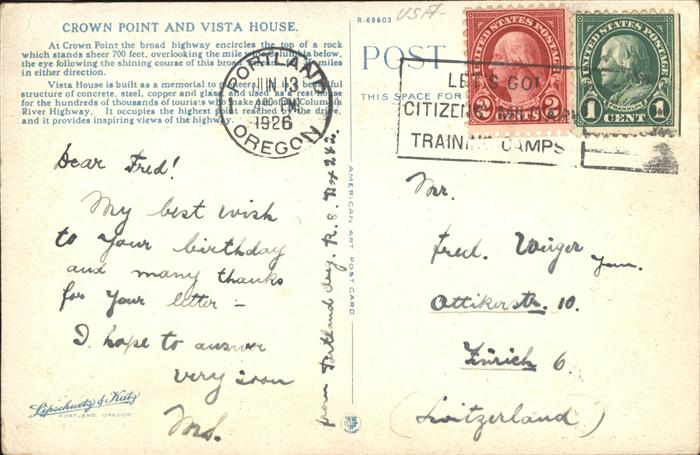 CROWN POINT AND VISTA HOUSE.
At Crown Point the broad highway encircles the top of a rock
which stands sheer 700 feet, overlooking the mile wide Columbia below,
the eye following the shining course of this broad miles
in either direction.
Vista House is built as a memorial to pioneers
structure of concrete, steel, copper and glass and used as a rest-house
for the hundreds of thousands of tourists who make a tour of Columbia
River Highway. It occupies the highest point reached by the drive,
and it provides inspiring views of the highway.
Dear Fred!
My best wish
to Your birthday
and many thanks
for Your letter –
I hope to answer
very soon
Lipschuetz & Katz
PORTLAND, OREGON
from Portland Oreg. R. 8. Box 242.
AMERICAN ART POST CARD
R-68603
USA
POST
THIS SPACE FOR
PORTLAND
JUN 13
PM
1926
OREGON
1
LET'S GO!
CITIZENS
TRAINING CAMPS
UNITED STATES POSTAGE
2 CENTS 2
UNITED STATES POSTAGE
FRANKLIN
1 CENT 1
Mr.
Fred. Weiger jun.
Ottikerstr. 10.
Zürich 6.
(Switzerland)